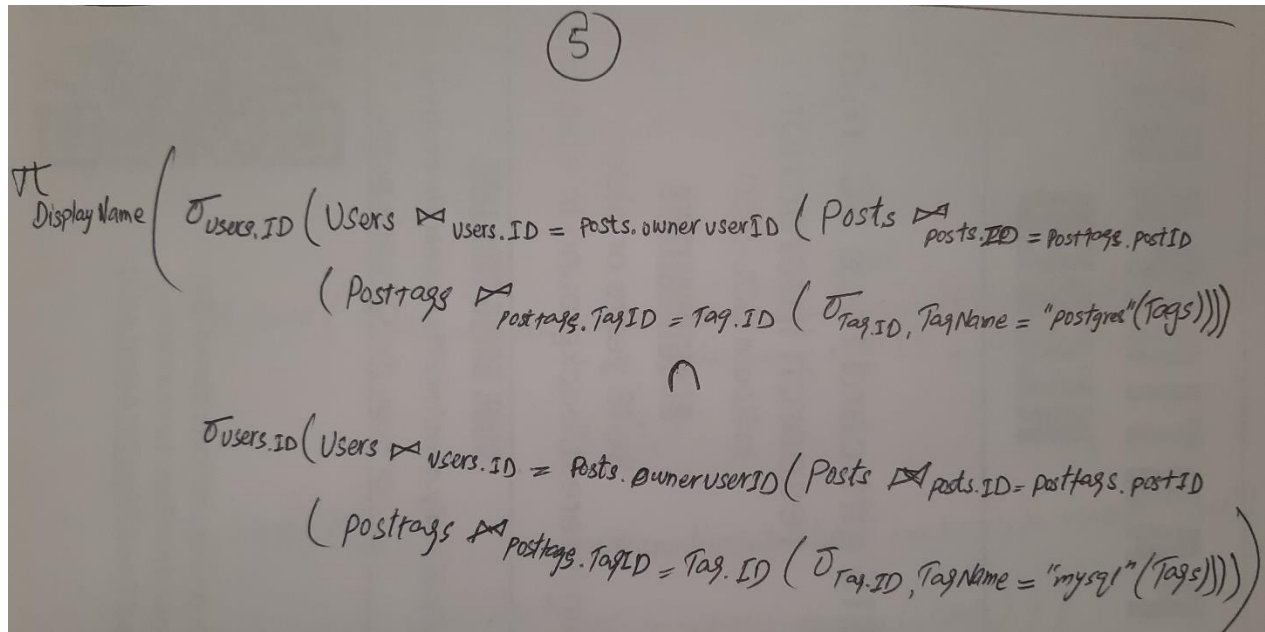 5
π DisplayName ( σ Users.ID ( Users ⋈ users.ID = Posts.owneruserID ( Posts ⋈ posts.ID = Posttags.postID
( Posttags ⋈ posttags.TagID = Tag.ID ( σ Tag.ID, TagName = "postgres" (Tags))))
∩
σ users.ID ( Users ⋈ users.ID = Posts.owneruserID ( Posts ⋈ posts.ID = posttags.postID
( posttags ⋈ posttags.TagID = Tag.ID ( σ Tag.ID, TagName = "mysql" (Tags)))) )